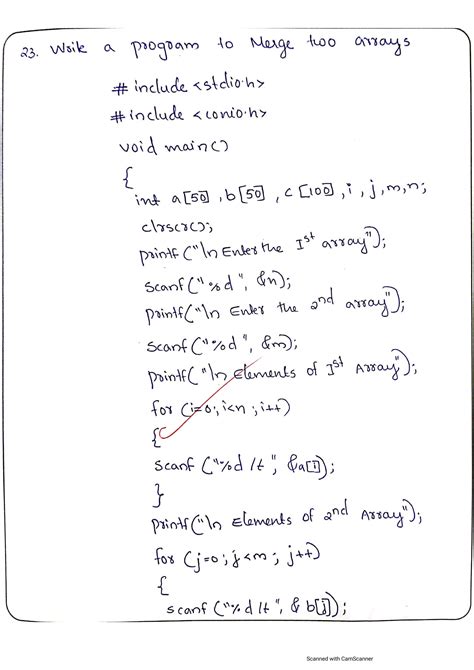 23. Write a program to Merge two arrays
# include <stdio.h>
# include <conio.h>
void main()
{
int a[50], b[50], c[100], i, j, m, n;
clrscr();
printf ("\n Enter the Ist array");
scanf ("%d", &n);
printf("\n Enter the 2nd array");
scanf ("%d", &m);
printf("\n Elements of Ist Array");
for (i=0; i<n; i++)
{
scanf ("%d \t", &a[i]);
}
printf("\n Elements of 2nd Array");
for (j=0; j<m; j++)
{
scanf ("%d \t", &b[j]);
Scanned with CamScanner